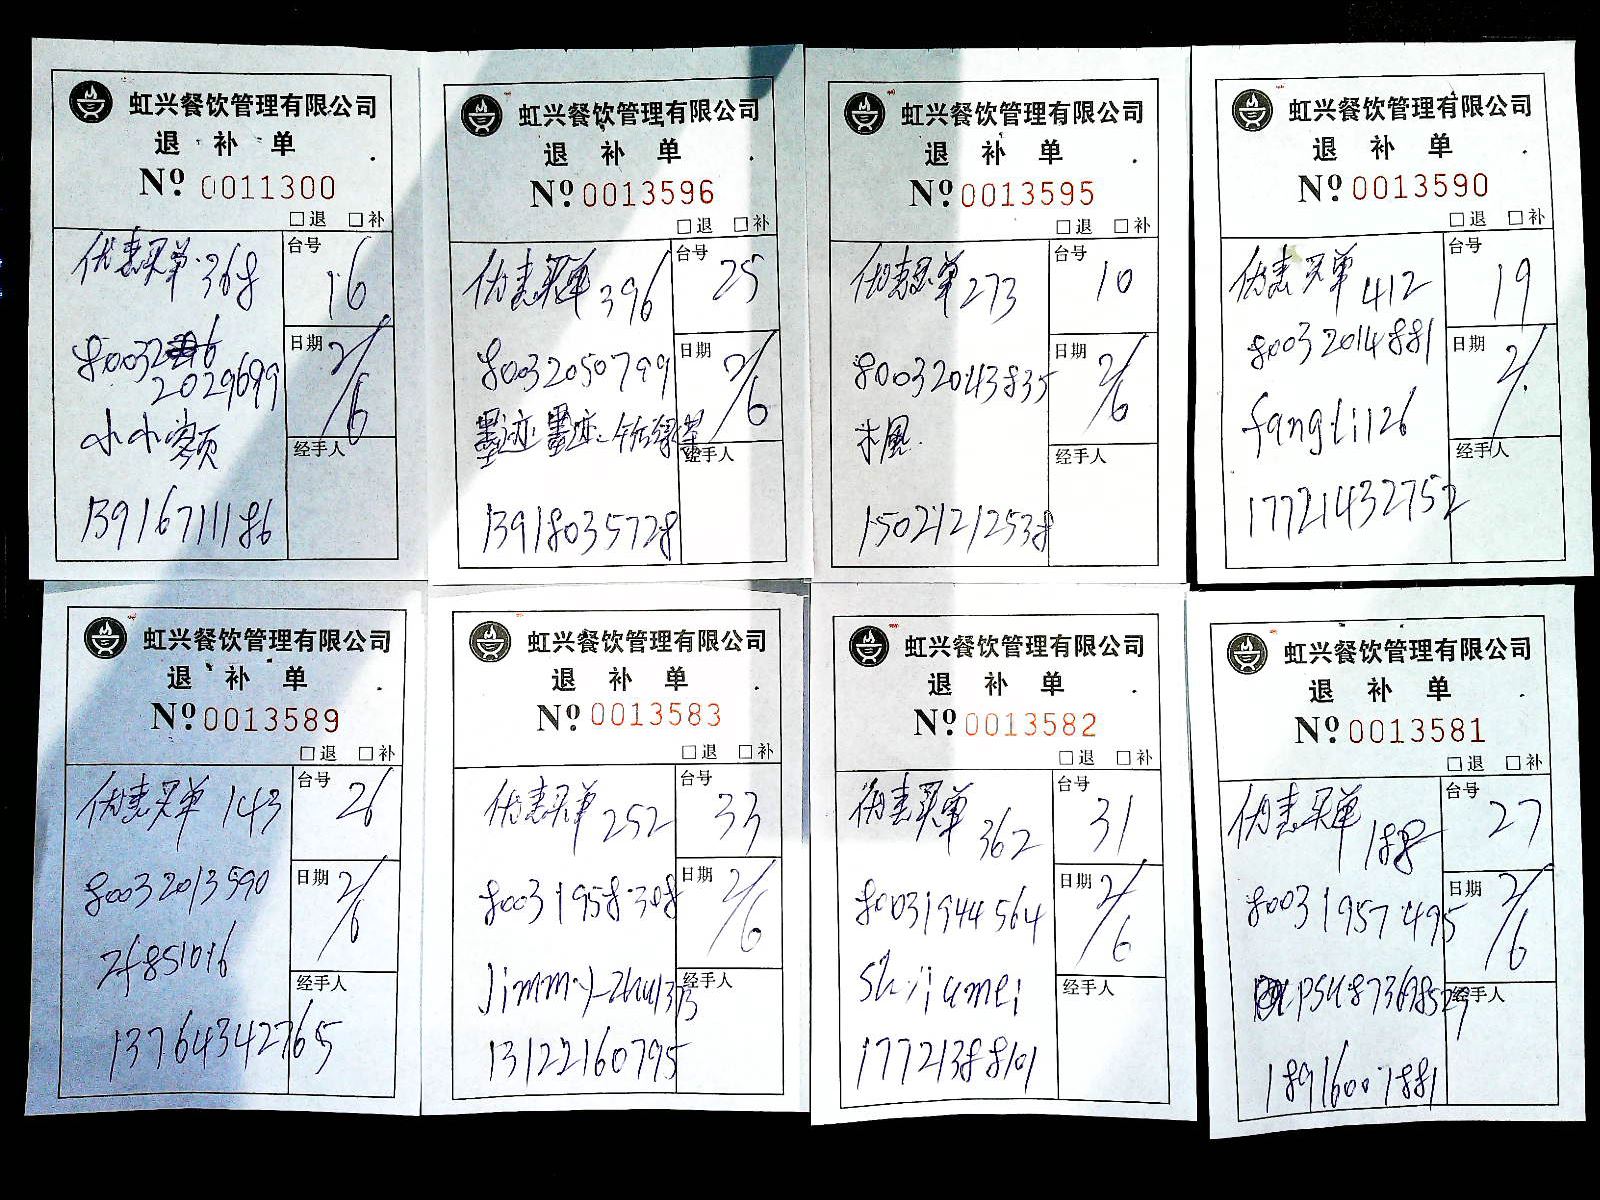 虹兴餐饮管理有限公司
退 补 单
Nº 0011300
□退 □补
优惠买单 368
台号
16
80032
2029699
日期
2/6
小小
经手人
13916711186
虹兴餐饮管理有限公司
退 补 单
Nº 0013596
□退 □补
优惠买单 396
台号
25
80032050799
日期
2/6
墨迹墨迹
经手人
13918035728
虹兴餐饮管理有限公司
退 补 单
Nº 0013595
□退 □补
优惠买单 273
台号
10
80032043835
日期
2/6
木風
经手人
15021212538
虹兴餐饮管理有限公司
退 补 单
Nº 0013590
□退 □补
优惠买单 412
台号
19
80032014881
日期
2/
fangli126
经手人
17721432752
虹兴餐饮管理有限公司
退 补 单
Nº 0013589
□退 □补
优惠买单 143
台号
26
80032013590
日期
2/6
zf851016
经手人
13764342765
虹兴餐饮管理有限公司
退 补 单
Nº 0013583
□退 □补
优惠买单 252
台号
33
80031958308
日期
2/6
Jimmy-zhu1373
经手人
13122160795
虹兴餐饮管理有限公司
退 补 单
Nº 0013582
□退 □补
优惠买单 362
台号
31
80031944564
日期
2/6
shijiamei
经手人
17721388101
虹兴餐饮管理有限公司
退 补 单
Nº 0013581
□退 □补
优惠买单 188
台号
27
80031957495
日期
2/6
经手人
18916001881